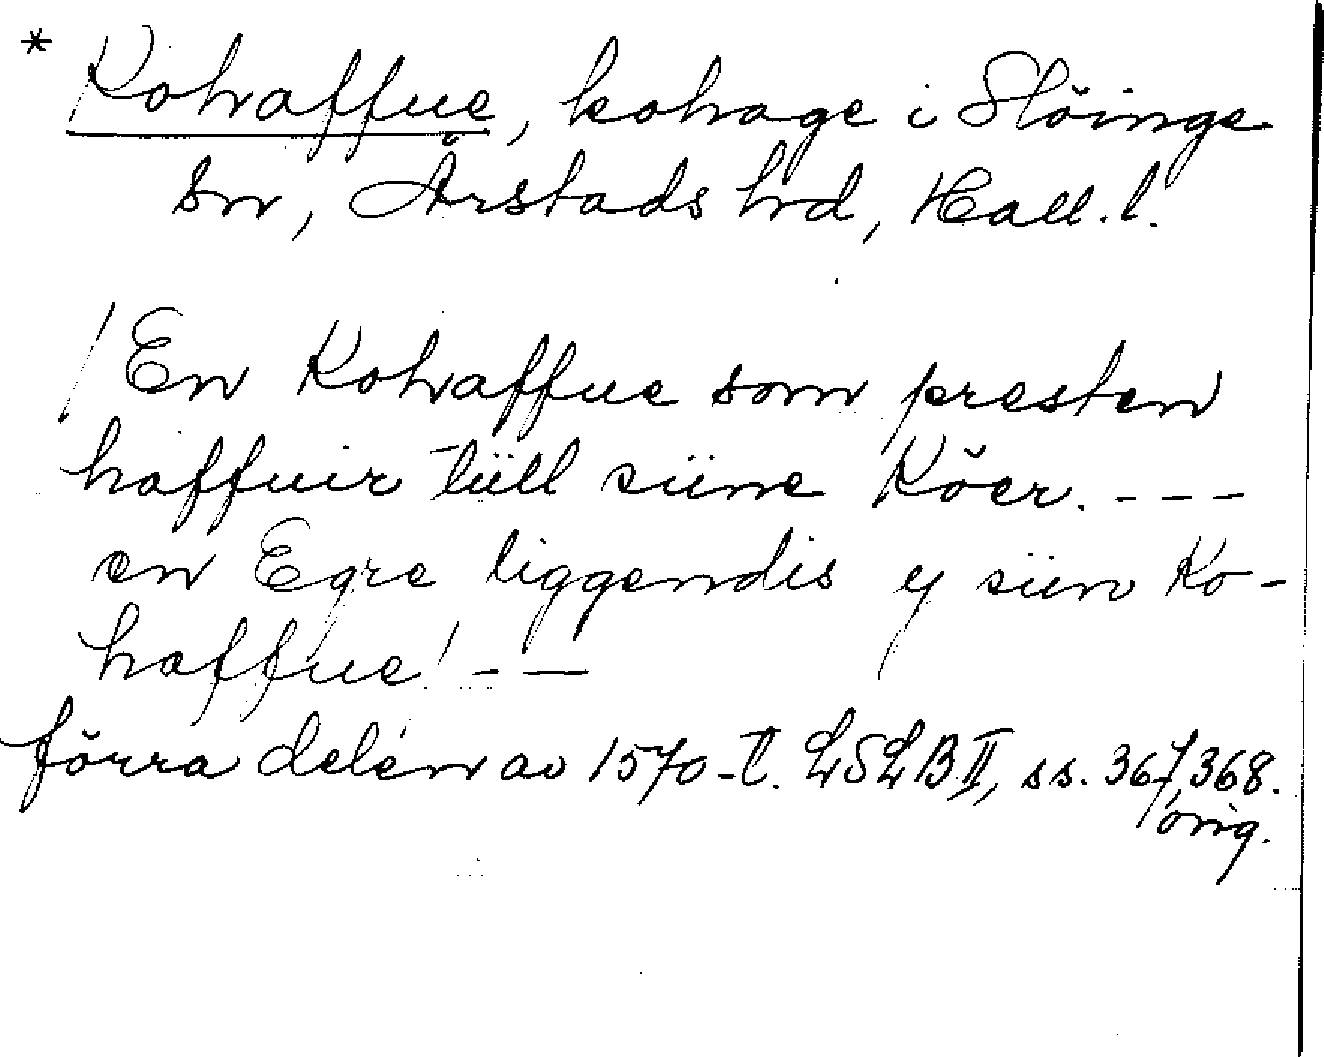 * Kohaffue, kohage i Slöinge
sn, Årstads hd, Hall. l.
/ En Kohaffue som presten
haffuir tüll süne Köer. - - -
en Egre liggendis y sün Ko-
haffue! - —
förra delen av 1570-t. LSLB II, ss. 367, 368.
orig.